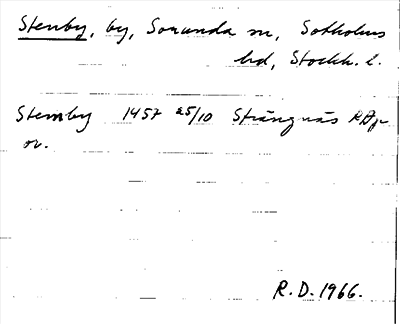 Stenby, by, Sorunda sn, Sotholms
hd, Stockh. l.
Stemby 1457 25/10 Strängnäs RAp
or.
R.D. 1966.